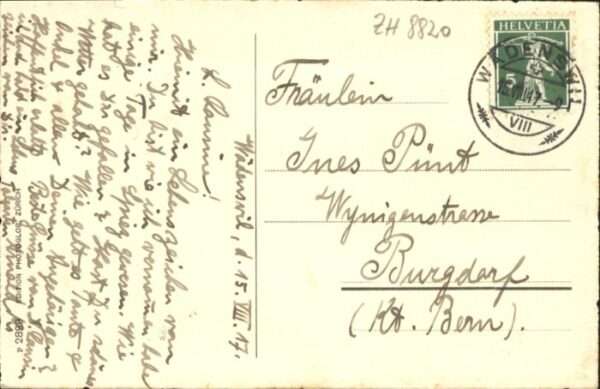 ZH 8820
HELVETIA
5
WÄDENSWIL
VIII
Fräulein
Ines Pünt
Wynigenstrasse
Burgdorf
(Kt. Bern).
Wädenswil, d. 15. VIII. 17.
L. Cousine!
Hiermit ein Lebenszeichen von
mir. Du bist wie ich vernommen habe
einige Tage in Spiez gewesen. Wie
hat es Dir gefallen? Hast Du schönes
Wetter gehabt? Wie geht es Tante &
Onkel & allen Deinen Angehörigen?
Hoffentlich
von Dir
EDITION PHOTOGLOB, ZÜRICH